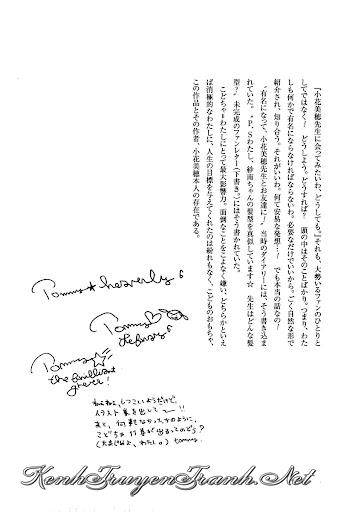 『小花美穂先生に会ってみたいわ、どうしても。』それも、大勢いるファンのひとりと
してではなく！　どうしよう。どうすれば？　頭の中はそのことばかり。つまり、わた
しも何かで有名にならなければならないわ。必要なだけでいいから。ごく自然な形で
紹介され、知り合う。それがいいわ。何て安易な発想…！　でも本当の話なの！
〝有名になって、小花美穂先生とお友達に！〟当時のダイアリーには、そう書き込ま
れていた。〝P．S わたし、紗南ちゃんの髪型を真似しています☆　先生はどんな髪
型？〟未完成のファンレター（下書き。）にはそう書かれていた。
こどちゃ＝わたしにとって最大影響力。面倒なことをこよなく嫌い、どちらかといえ
ば消極的なわたしに、人生の目標を与えてくれたのは紛れもなく、こどものおもちゃ、
この作品とその作者、小花美穂本人の存在である。
Tommy★heavenly6
Tommy♡
february6
Tommy☆
the brilliant
green!
イラスト集を出して〜!!
こどちゃ
tommy.
KenhTruyenTranh.Net